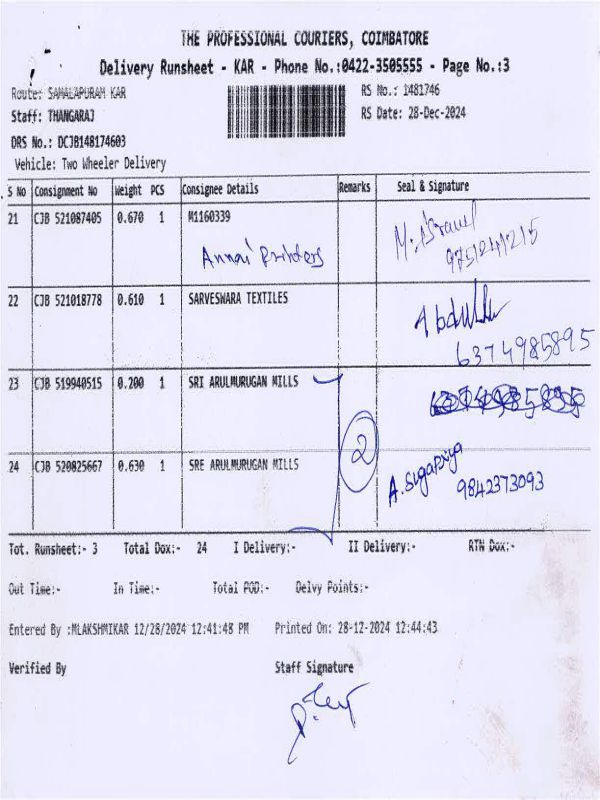 THE PROFESSIONAL COURIERS, COIMBATORE
Delivery Runsheet - KAR - Phone No.:0422-3505555 - Page No.:3
Route: SAMALAPURAM KAR
RS No.: 1481746
Staff: THANGARAJ
RS Date: 28-Dec-2024
DRS No.: DCJB148174603
Vehicle: Two Wheeler Delivery
S No Consignment No Weight PCS Consignee Details Remarks Seal & Signature
21 CJB 521087405 0.670 1 M1160339
Annai Printers
22 CJB 521018778 0.610 1 SARVESWARA TEXTILES
Abdulla
6374985895
23 CJB 519940515 0.200 1 SRI ARULMURUGAN MILLS
2
24 CJB 520825667 0.630 1 SRE ARULMURUGAN MILLS
A. Sugapriya
9842373093
Tot. Runsheet:- 3 Total Dox:- 24 I Delivery:- II Delivery:- RTN Dox:-
Out Time:- In Time:- Total POD:- Delvy Points:-
Entered By :MLAKSHMIKAR 12/28/2024 12:41:48 PM Printed On: 28-12-2024 12:44:43
Verified By Staff Signature